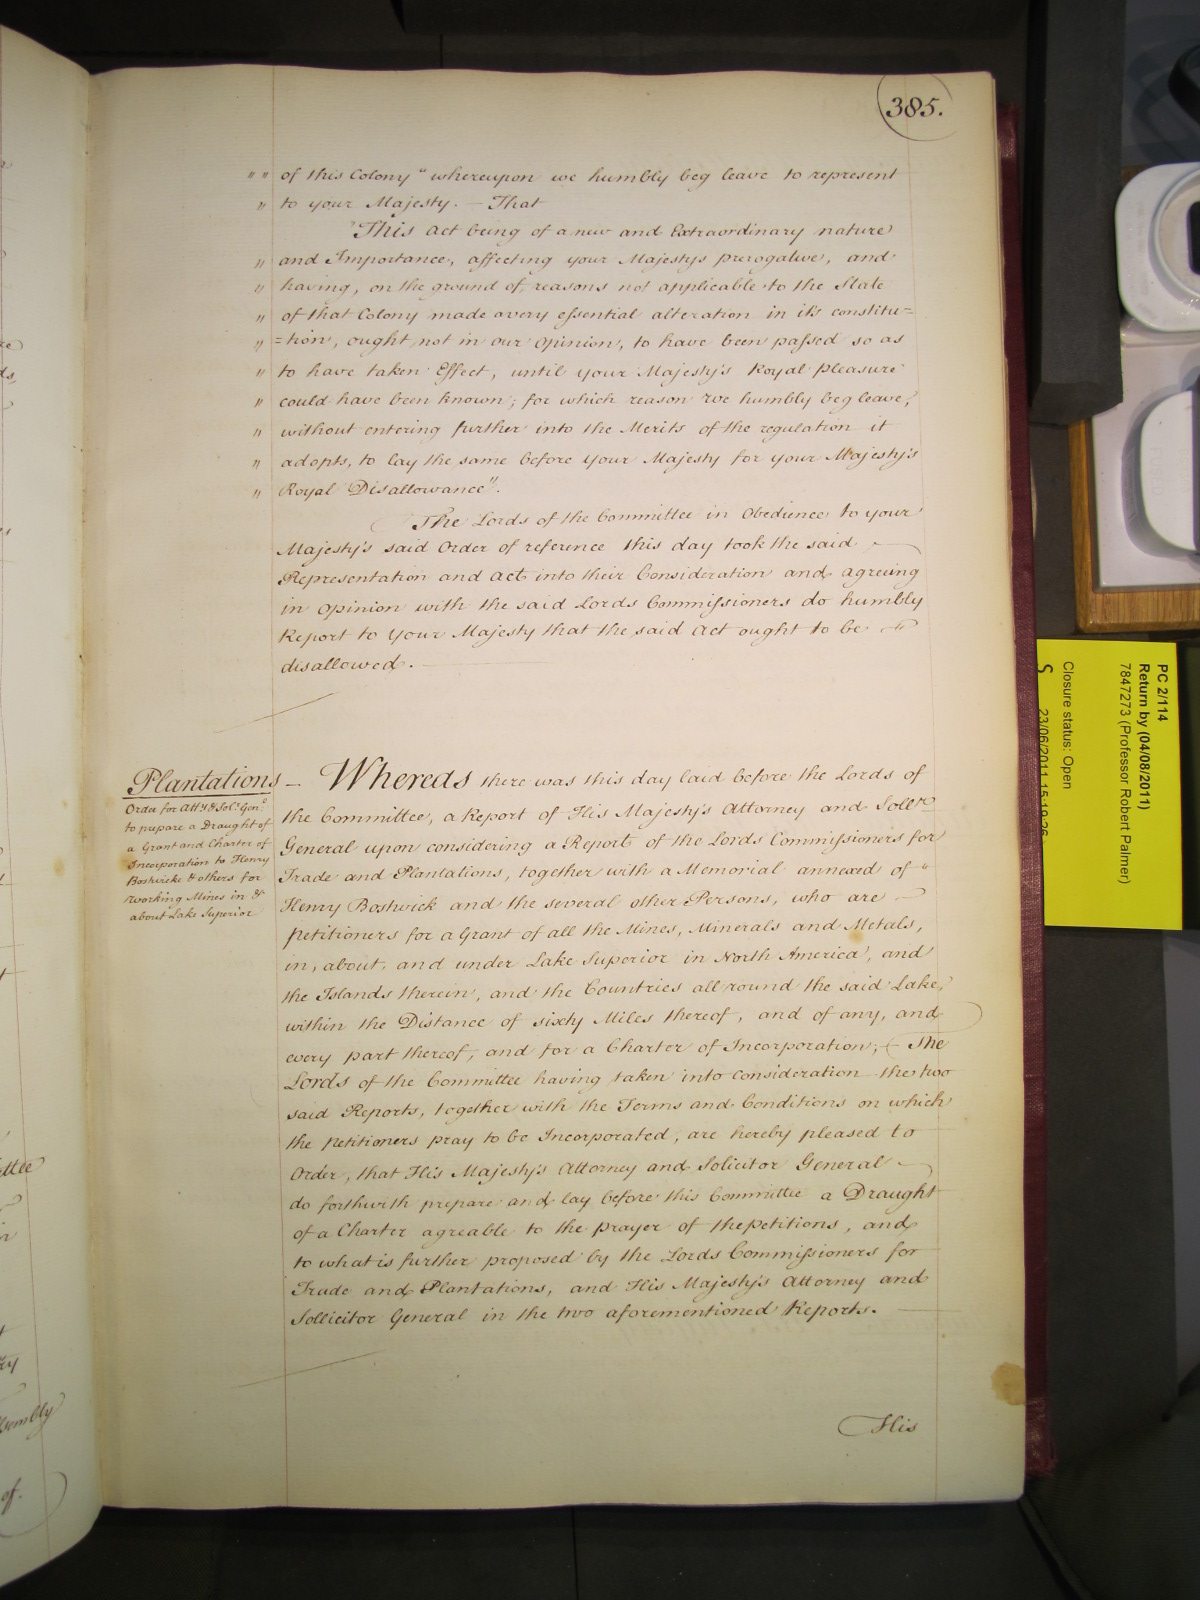 385.
" " of this Colony " whereupon we humbly beg leave to represent
" to your Majesty. — That
"This Act being of a new and Extraordinary nature
" and Importance, affecting your Majesty's prerogative, and
" having, on the ground of reasons not applicable to the State
" of that Colony made a very essential alteration in it's constitu=
" =tion, ought not in our Opinion, to have been passed so as
" to have taken Effect, until your Majesty's Royal Pleasure
" could have been known; for which reason we humbly beg leave,
" without entering further into the Merits of the regulation it
" adopts, to lay the same before your Majesty for your Majesty's
" Royal Disallowance".
The Lords of the Committee in Obedience to your
Majesty's said Order of reference this day took the said
Representation and Act into their Consideration and agreeing
in Opinion with the said Lords Commissioners do humbly
Report to Your Majesty that the said Act ought to be
disallowed.
Plantations —
Order for Atty & Solr. Genl.
to prepare a Draught of
a Grant and Charter of
Incorporation to Henry
Bostwick & others for
working Mines in &
about Lake Superior
Whereas there was this day laid before the Lords of
the Committee, a Report of His Majesty's Attorney and Sollr.
General upon considering a Report of the Lords Commissioners for
Trade and Plantations, together with a Memorial annexed of
Henry Bostwick and the several other Persons, who are
petitioners for a Grant of all the Mines, Minerals and Metals,
in, about, and under Lake Superior in North America, and
the Islands therein, and the Countries all round the said Lake,
within the Distance of sixty Miles thereof, and of any, and
every part thereof, and for a Charter of Incorporation; The
Lords of the Committee having taken into consideration the two
said Reports, together with the Terms and Conditions on which
the petitioners pray to be Incorporated, are hereby pleased to
Order, that His Majesty's Attorney and Solicitor General
do forthwith prepare and lay before this Committee a Draught
of a Charter agreable to the prayer of the petitions, and
to what is further proposed by the Lords Commissioners for
Trade and Plantations, and His Majesty's Attorney and
Sollicitor General in the two aforementioned Reports.
His
PC 2/114
Return by (04/08/2011)
7847273 (Professor Robert Palmer)
Closure status: Open
S